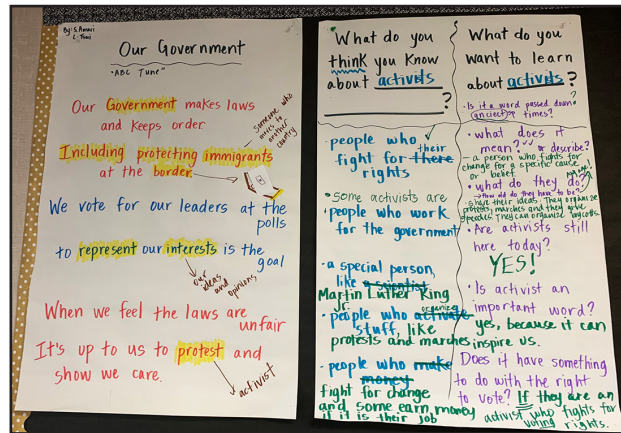 By: S.
Our Government
"ABC Tune"
Our Government makes laws
and keeps order.
someone who
moves to
another
country
Including protecting immigrants
at the border.
We vote for our leaders at the
polls
to represent our interests is the
goal
our
ideas
and
opinions
When we feel the laws are
unfair
It's up to us to protest and
show we care.
activist
What do you
think you know
about activists
?
people who their
fight for there
rights
some activists are
people who work
for the government
a special person,
like a scientist
Martin Luther King
Jr.
organize
people who activate
stuff, like
protests and marches
people who make
money
fight for change
and some earn money
if it is their job
What do you
want to learn
about activists?
Is it a word passed down?
ancient times?
what does it
mean? or describe?
a person who fights for
change for a specific cause
or belief.
what do they do?
How do they have to be?
share their ideas. They organize
protests, marches and they give
speeches. They can organize boycotts.
Are activists still
here today?
YES!
Is activist an
important word?
yes, because it can
inspire us.
Does it have something
to do with the right
to vote? If they are an
activist who fights for
voting rights.